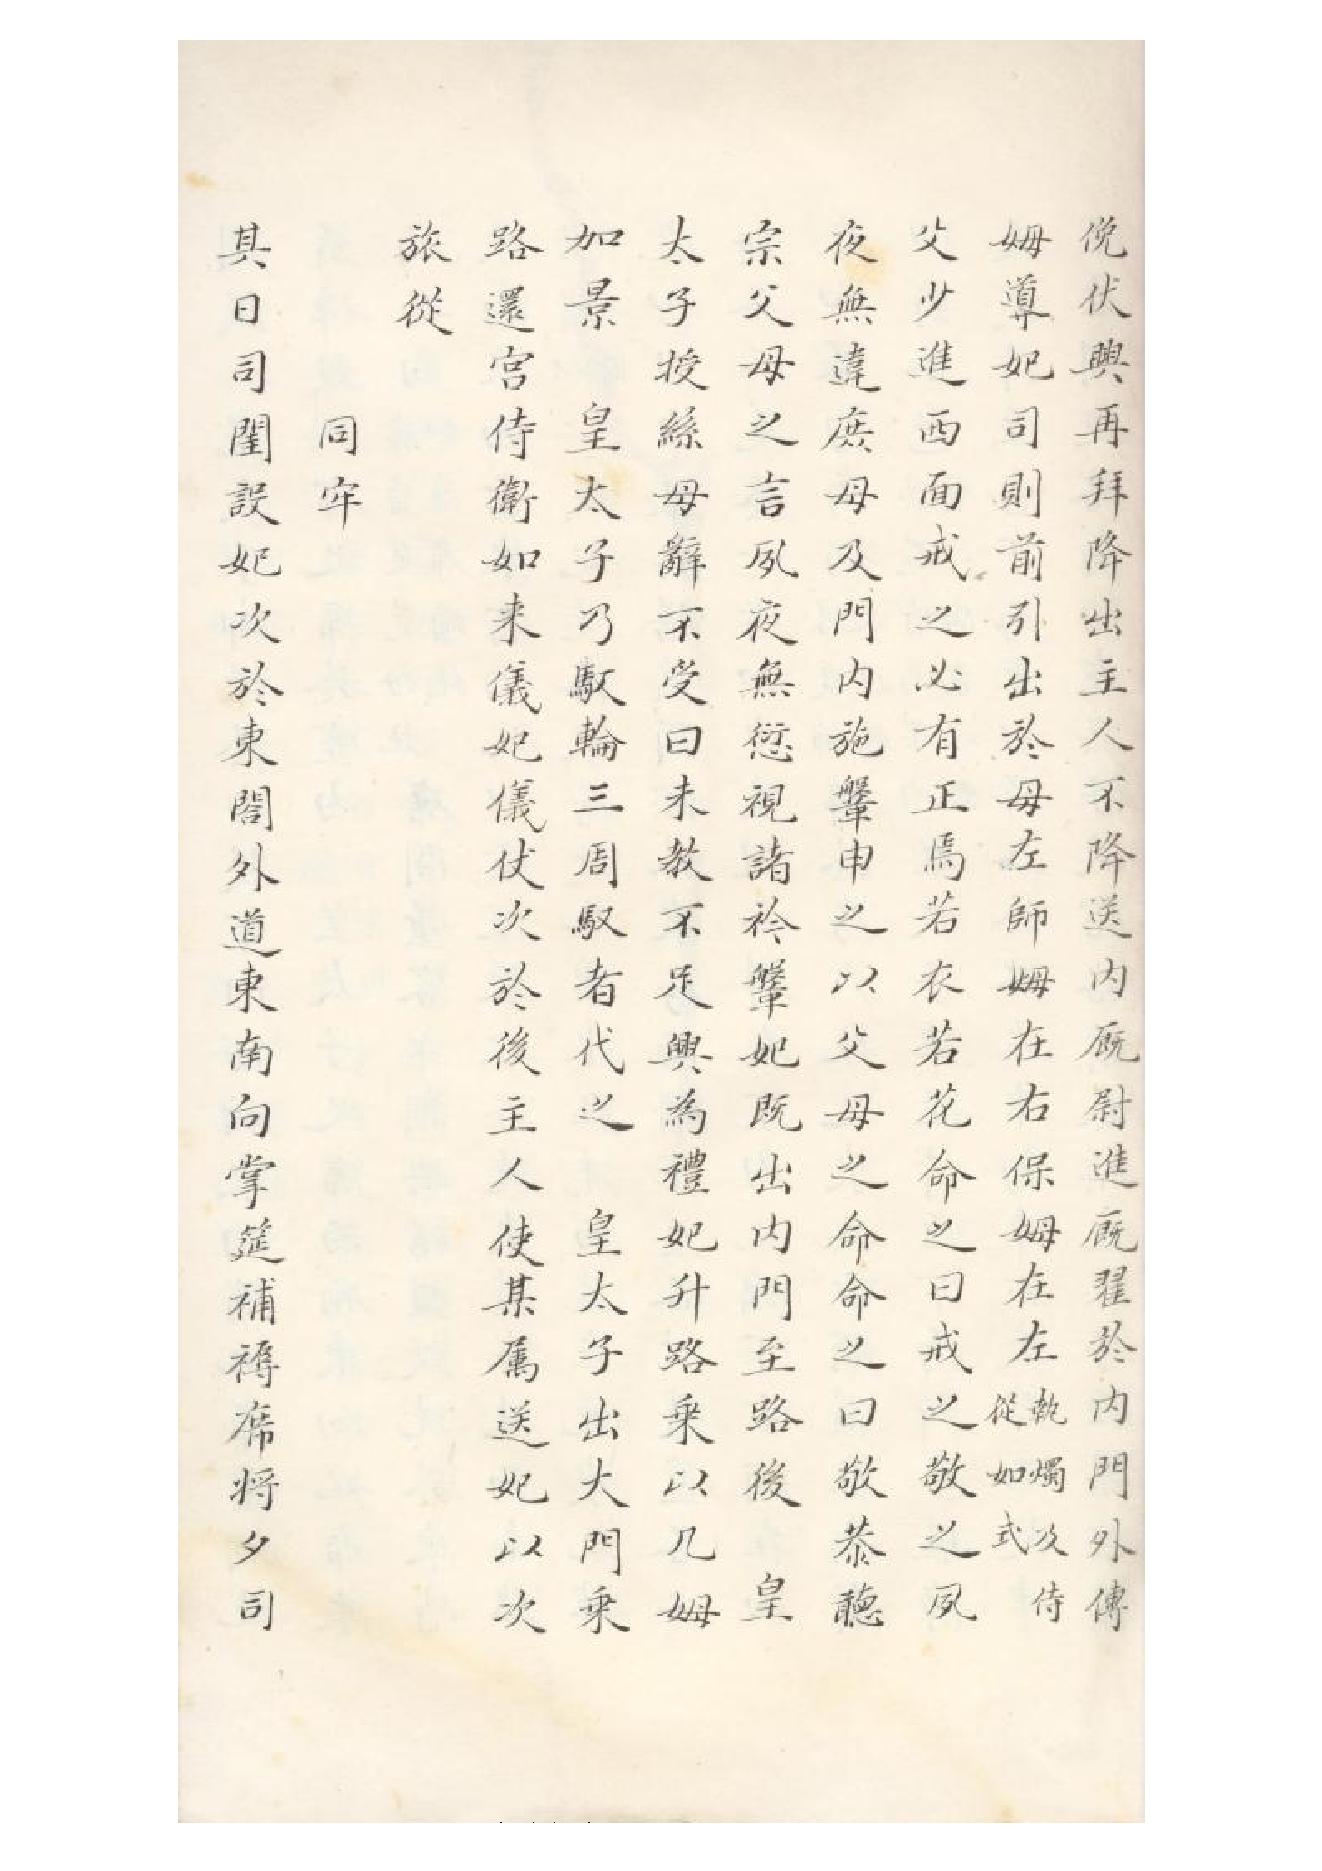 俛伏興再拜降出主人不降送内厩尉進厩翟於内門外傅
姆導妃司則前引出於母左師姆在右保姆在左執燭及侍從如式
父少進西面戒之必有正焉若衣若花命之曰戒之敬之夙
夜無違庶母及門内施鞶申之以父母之命命之曰敬恭聽
宗父母之言夙夜無愆視諸衿鞶妃既出内門至路後皇
太子授綏母辭不受曰未教不足興為禮妃升路乗以几姆
加景皇太子乃馭輪三周馭者代之皇太子出大門乗
路還宮侍衛如来儀妃儀仗次於後主人使某属送妃以次
旅從
同牢
其日司閨設妃次於東閤外道東南向掌筵補褥席将夕司